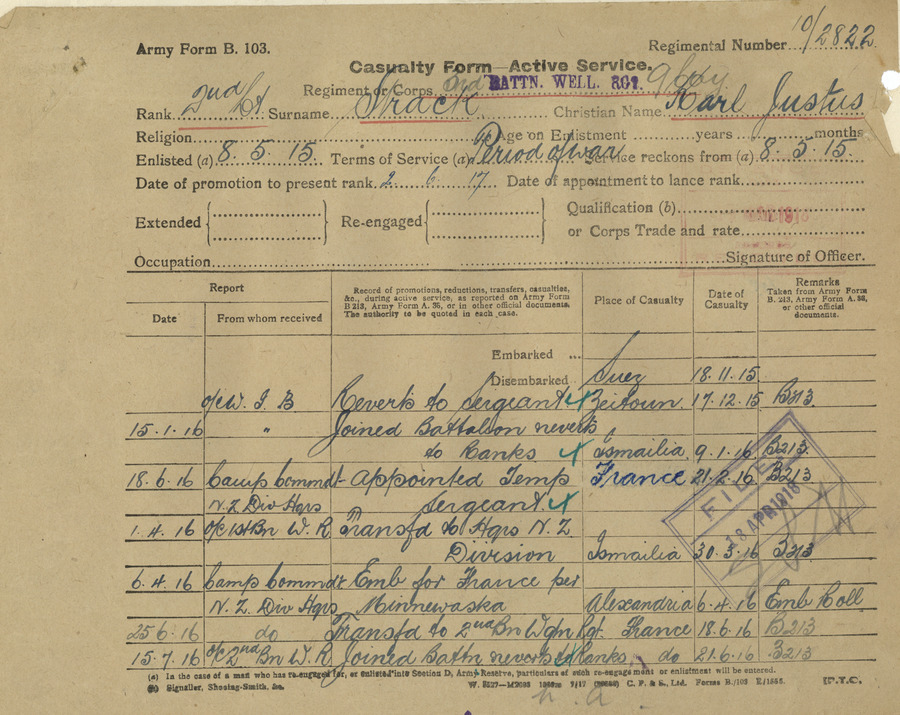 Army Form B. 103.
Regimental Number 10/2822
Casualty Form—Active Service.
Regiment or Corps 3rd BATTN. WELL. RGT.
Rank 2nd Lt Surname Strack Christian Name Karl Justus
Religion Age on Enlistment years months
Enlisted (a) 8.5.15. Terms of Service (a) Period of war Service reckons from (a) 8.5.15.
Date of promotion to present rank 2.6.17 Date of appointment to lance rank
Extended Re-engaged Qualification (b)
or Corps Trade and rate
Occupation Signature of Officer.
Report
Date From whom received
Record of promotions, reductions, transfers, casualties, &c., during active service, as reported on Army Form B 213, Army Form A. 36, or in other official documents. The authority to be quoted in each case.
Place of Casualty
Date of Casualty
Remarks
Taken from Army Form B. 213, Army Form A. 36, or other official documents.
Embarked ...
Disembarked Suez 18.11.15
o/c W. I. B Reverts to Sergeant Zeitoun. 17.12.15 B213
15.1.16 " Joined Battalion reverts
to Ranks Ismailia 9.1.16 B213.
18.6.16 Camp Commdt Appointed Temp France 21.2.16 B213
N.Z Div Hqrs Sergeant.
1.4.16 o/c 1st Bn W. R Transfd to Hqrs N. Z
Division Ismailia 30.3.16 B213
6.4.16 Camp Commdt Emb for France per
N. Z. Div Hqrs Minnewaska Alexandria 6.4.16 Emb Roll
25.6.16 do Transfd to 2nd Bn Wgtn Rgt. France 18.6.16 B213
15.7.16 o/c 2nd Bn W. R Joined Battn reverts to Ranks. do 21.6.16 B213
FILED
18 APR 1918
(a) In the case of a man who has re-engaged for, or enlisted into Section D, Army Reserve, particulars of such re-engagement or enlistment will be entered.
(b) Signaller, Shoeing-Smith, &c.
9/17 C. F. & S., Ltd. Forms B./103 E/1565. [P.T.O.